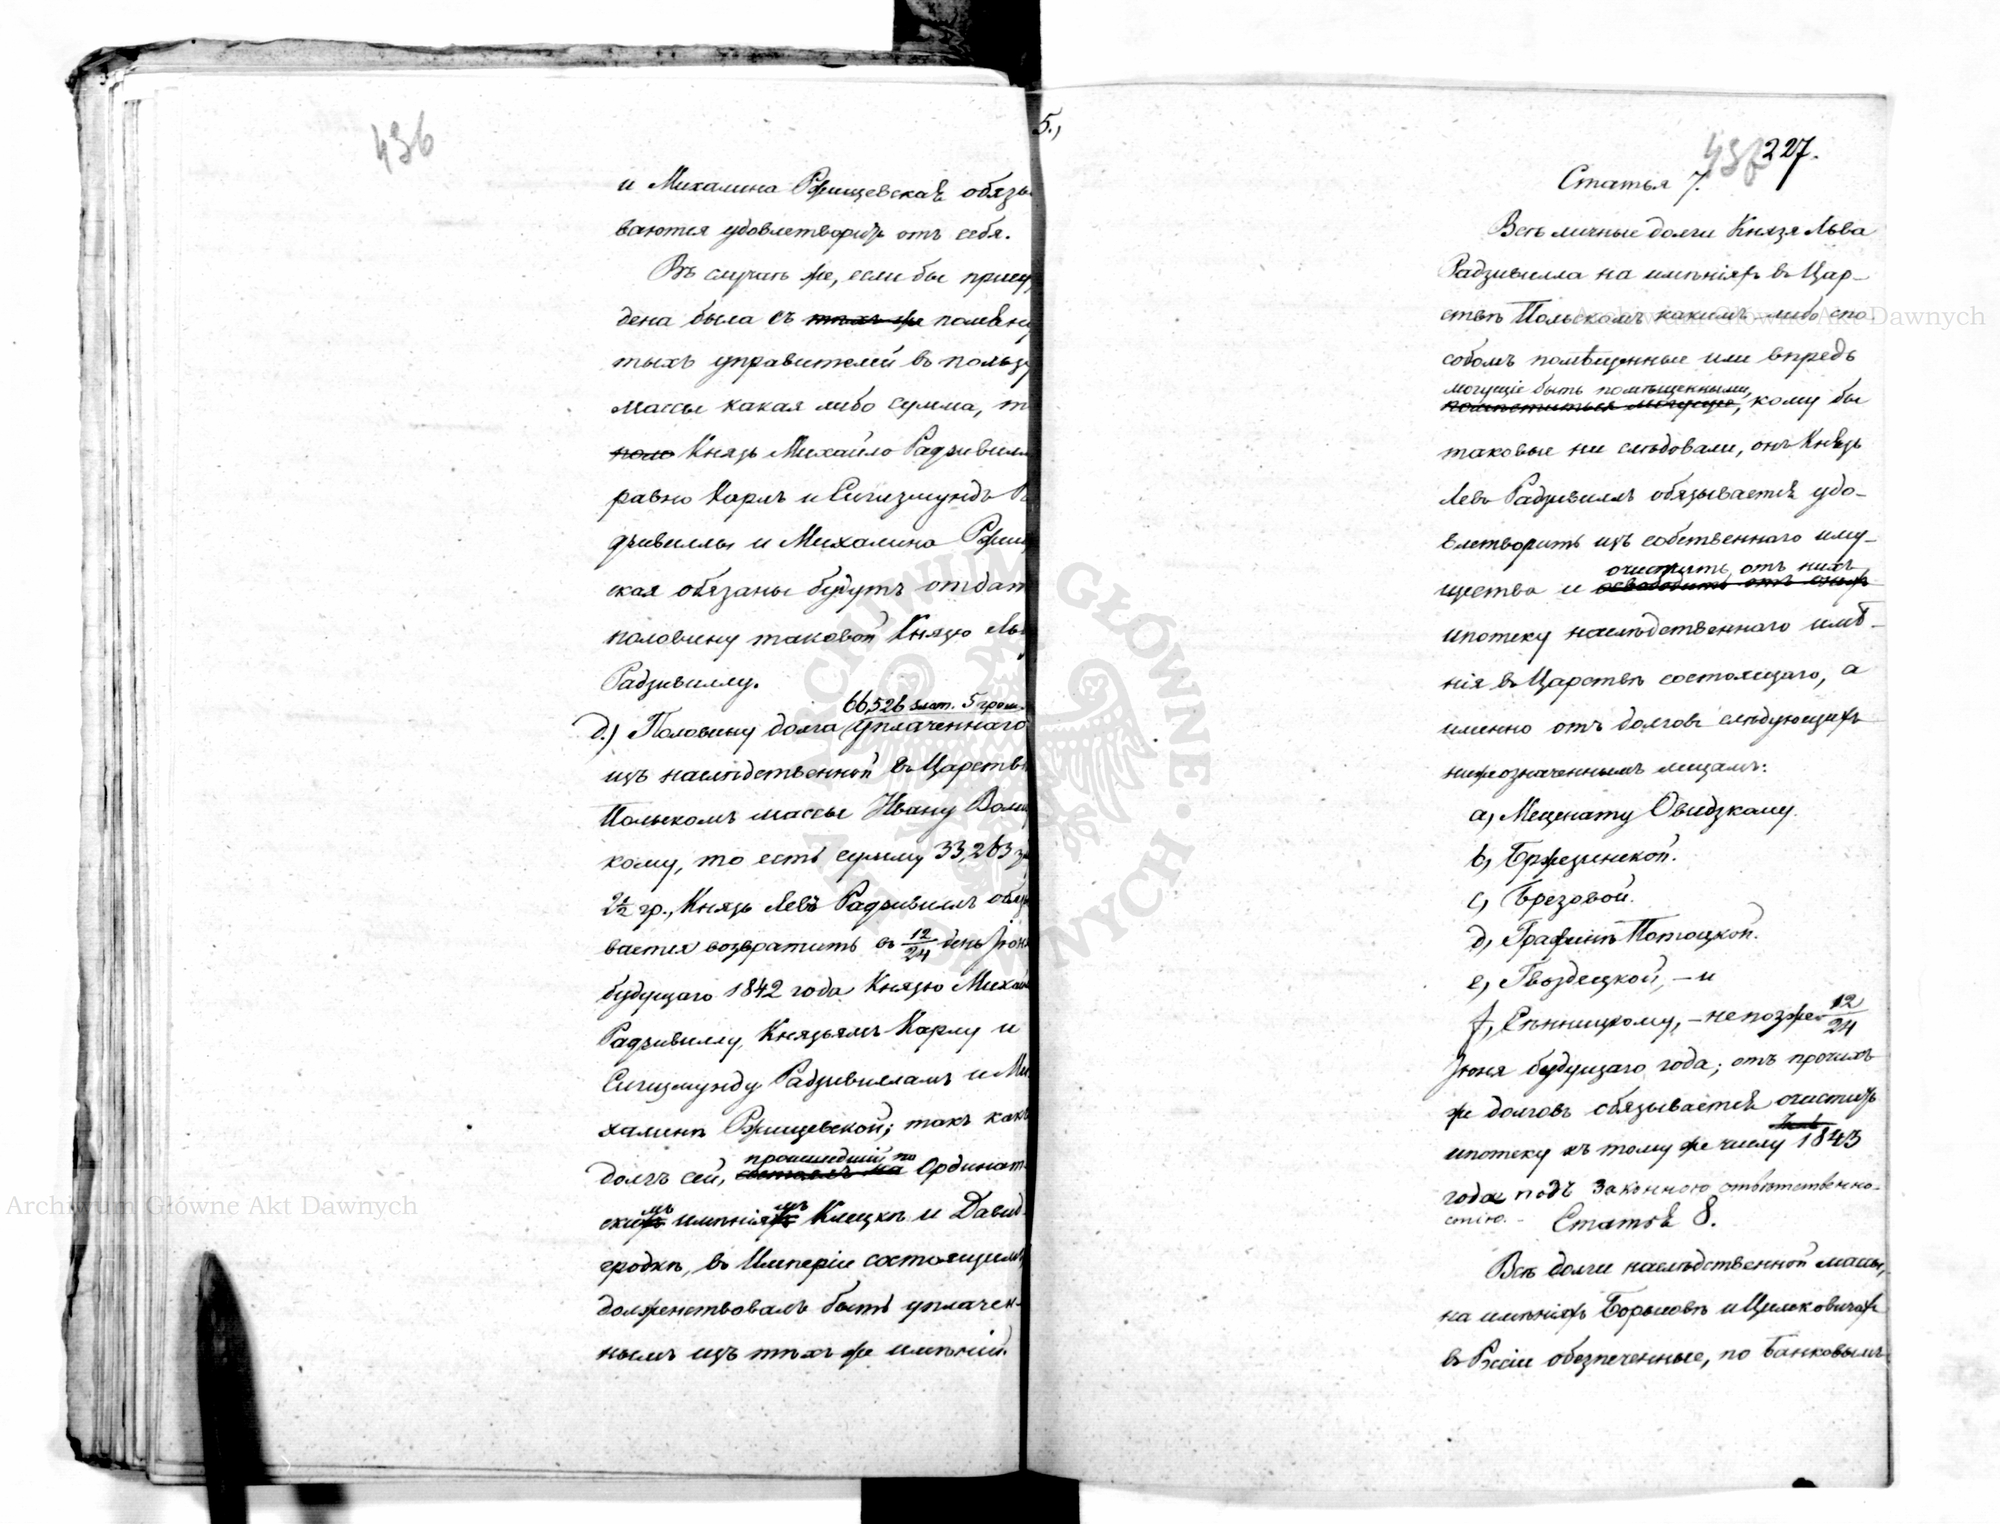 436
и Михалина Ржищевская обязы
ваются удовлетворить отъ себя.
Въ случаѣ же, если бы присуж
дена была съ тѣхъ же помяну
тыхъ управителей въ пользу
массы какая либо сумма, т
Князь Михайло Радзивилл
равно Карлъ и Сигизмундъ Ра
дзивиллы и Михалина Ржищ
ская обязаны будутъ отдат
половину таковой Князю Льв
Радзивиллу.
66,526 злот. 5 грош.
d.) Половину долга уплаченнаго
изъ наслѣдственной въ Царствѣ
Польскомъ массы Ивану
кому, то есть сумму 33,263 з
2½ гр., Князь Левъ Радзивиллъ обязы
вается возвратить въ 12/24 день Іюн
будущаго 1842 года Князю Михай
Радзивиллу, Князьямъ Карлу и
Сигизмунду Радзивилламъ и Ми
халинѣ Ржищевской; такъ какъ
прошедшій по
долгъ сей, Ординат
мъ мъ
скихъ имѣніяхъ Клецкѣ и Давид
гродкѣ, въ Имперіи состоящимъ
долженствовалъ быть уплачен-
нымъ изъ тѣхъ же имѣній.
5.,
437 227.
Статья 7.
Всѣ личные долги Князя Льва
Радзивилла на имѣніяхъ въ Цар-
ствѣ Польскомъ какимъ либо спо
собомъ помѣщенные или впредь
могущіе быть помѣщенными,
помѣститься могущіе, кому бы
таковые ни слѣдовали, онъ Князь
Левъ Радзивиллъ обязывается удо-
влетворить изъ собственнаго иму-
очистить отъ нихъ
щества и освободить отъ оныхъ
ипотеку наслѣдственнаго имѣ-
нія въ Царствѣ состоящаго, а
именно отъ долговъ слѣдующихъ
нижеозначеннымъ лицамъ:
a, Меценату Овидзкому.
b, Бржезинской.
c, Брезовой.
d, Графинѣ Потоцкой.
e, Гвоздецкой, – и
f, Сѣнницкому, – не позже 12/24
Іюня будущаго года; отъ прочихъ
же долговъ обязывается очистить
ипотеку къ тому же числу 1843
года подъ законною отвѣтственно-
стію. –
Статья 8.
Всѣ долги наслѣдственной массы,
на имѣніяхъ Борысовѣ и Цимковичахъ
въ Россіи обезпеченные, по Банковымъ
Archiwum Główne Akt Dawnych
Archiwum Główne Akt Dawnych
ARCHIWUM GŁÓWNE AKT DAWNYCH